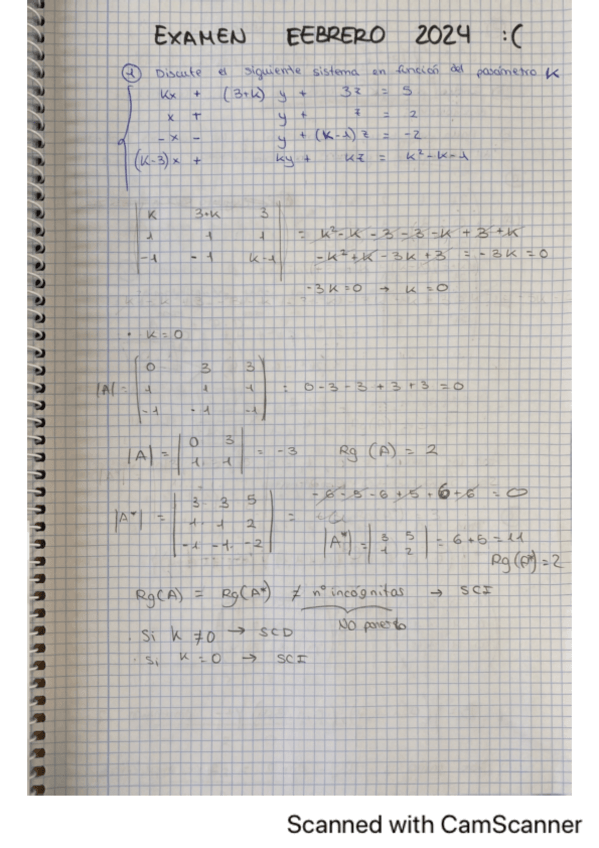 EXAMEN EEBRERO 2024 :(
1 Discute el siguiente sistema en función del parámetro K
Kx + (3+K) y + 3z = 5
x + y + z = 2
-x - y + (K-1) z = -2
(K-3)x + Ky + Kz = K²-K-1
K 3+K 3
1 1 1 = K²-K-3-3-K+3+K
-1 -1 K-1 -K²+K-3K+3 = -3K = 0
-3K=0 → K=0
· K=0
0 3 3
|A| = 1 1 1 = 0-3-3+3+3=0
-1 -1 -1
|A| = 0 3 = -3 Rg (A) = 2
1 1
3 3 5 -6-5-6+5+6+6 = 0
|A*| = 1 1 2 =
-1 -1 -2 |A*| = 3 5 = 6+5=11
1 2
Rg(A*)=2
Rg(A) = Rg(A*) ≠ nº incógnitas → SCI
No parento
· Si K ≠ 0 → SCD
· Si K = 0 → SCI
Scanned with CamScanner